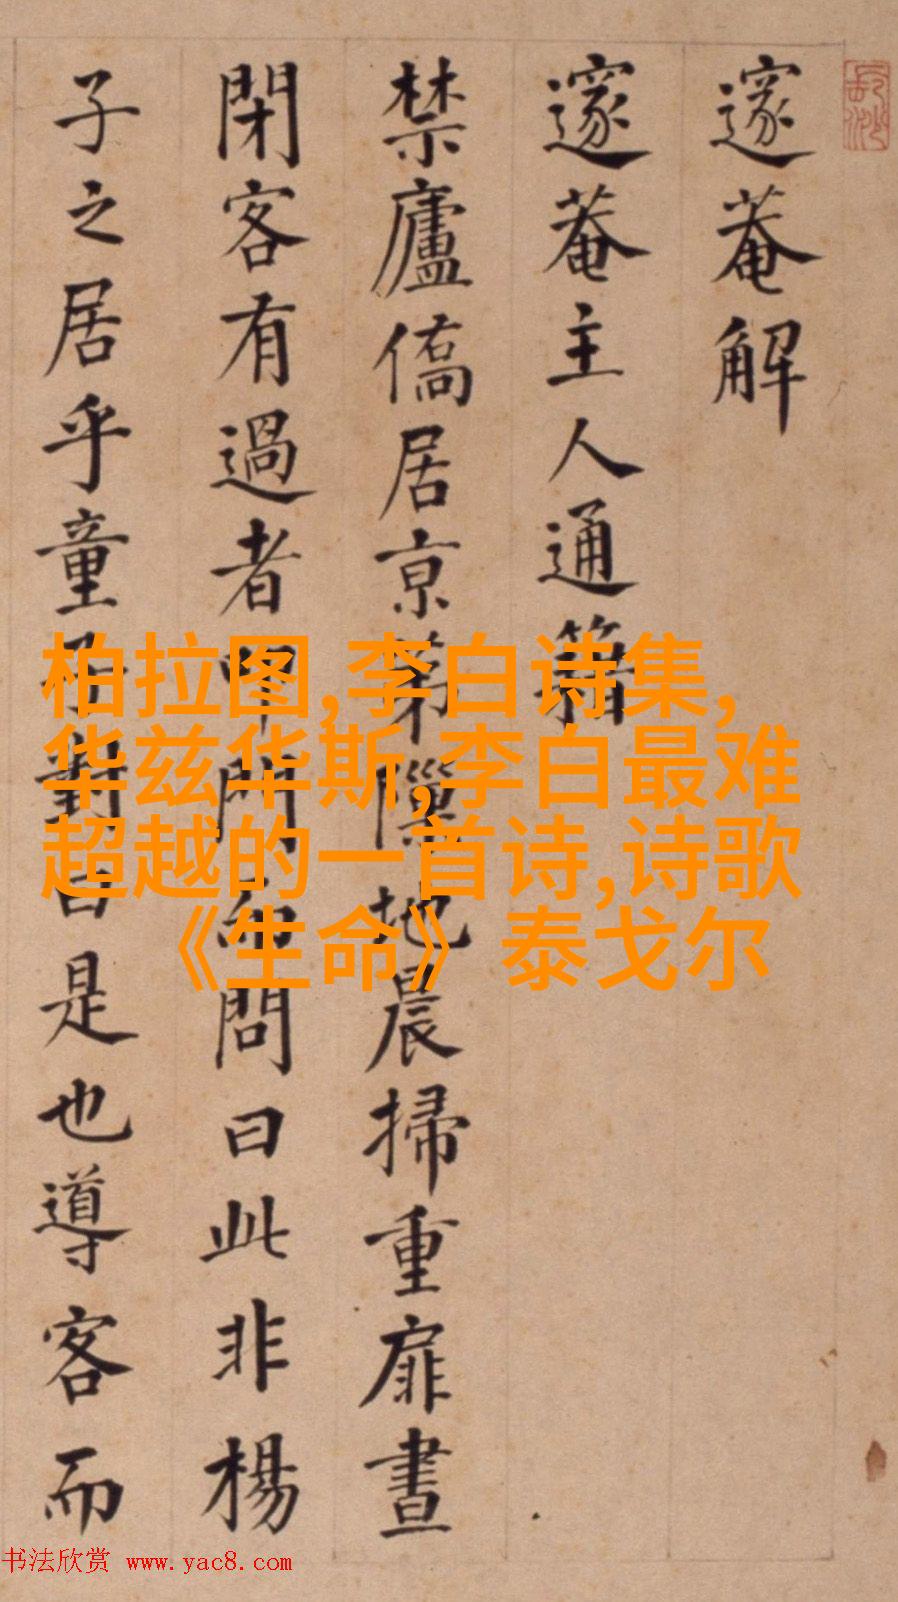 邃菴解
邃菴主人通籍
禁廬僑居亰第隟地晨掃重扉晝
閉客有過者叩門而問曰此非楊
子之居乎童子對曰是也導客而
柏拉图,李白诗集,
华兹华斯,李白最难
超越的一首诗,诗歌
《生命》泰戈尔
书法欣赏 www.yac8.com